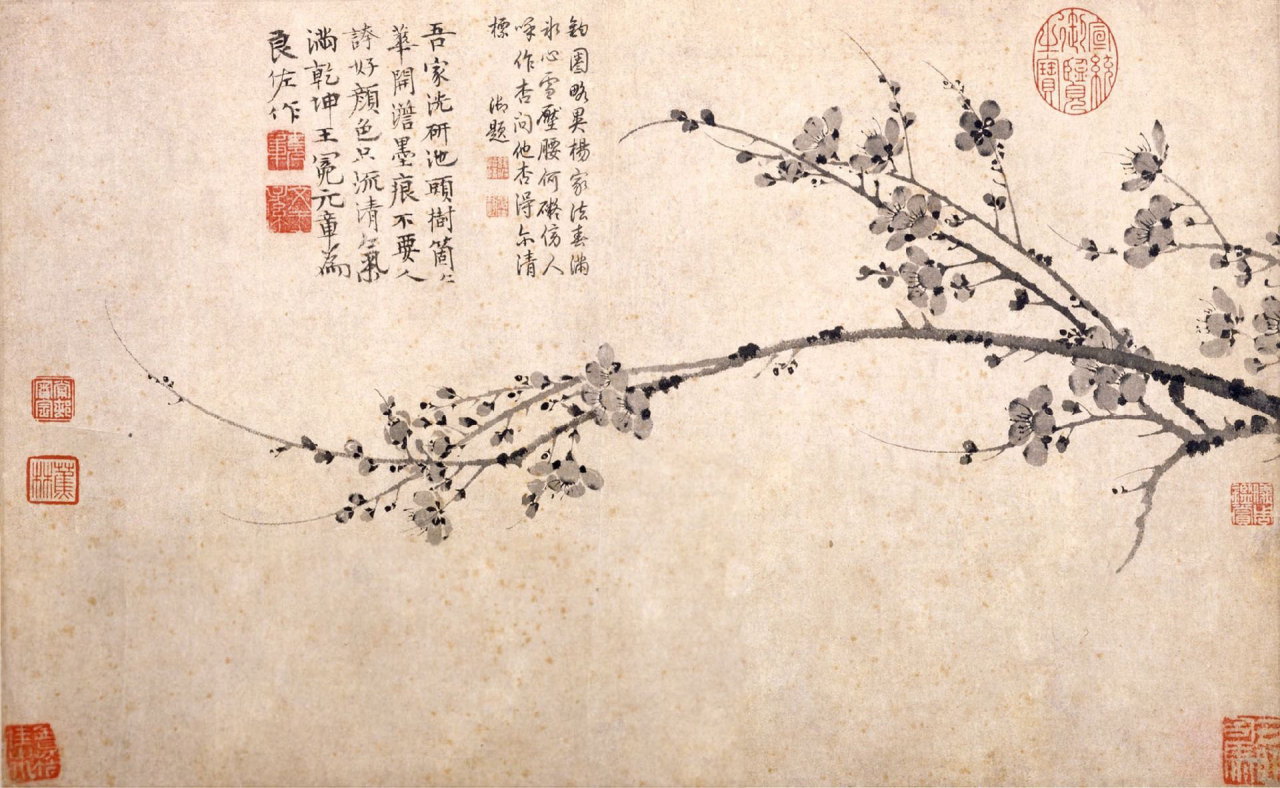 宣統
御覽
之寶
鈎圈略異楊家法春滿
冰心雪壓腰何礙傍人
呼作杏問他杏得尔清
標 御題
吾家洗研池頭樹箇々
華開澹墨痕不要人
誇好顏色只流清氣
滿乾坤王冕元章為
良佐作
蕉林